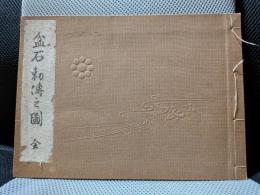 盆石勅傳之圖 全